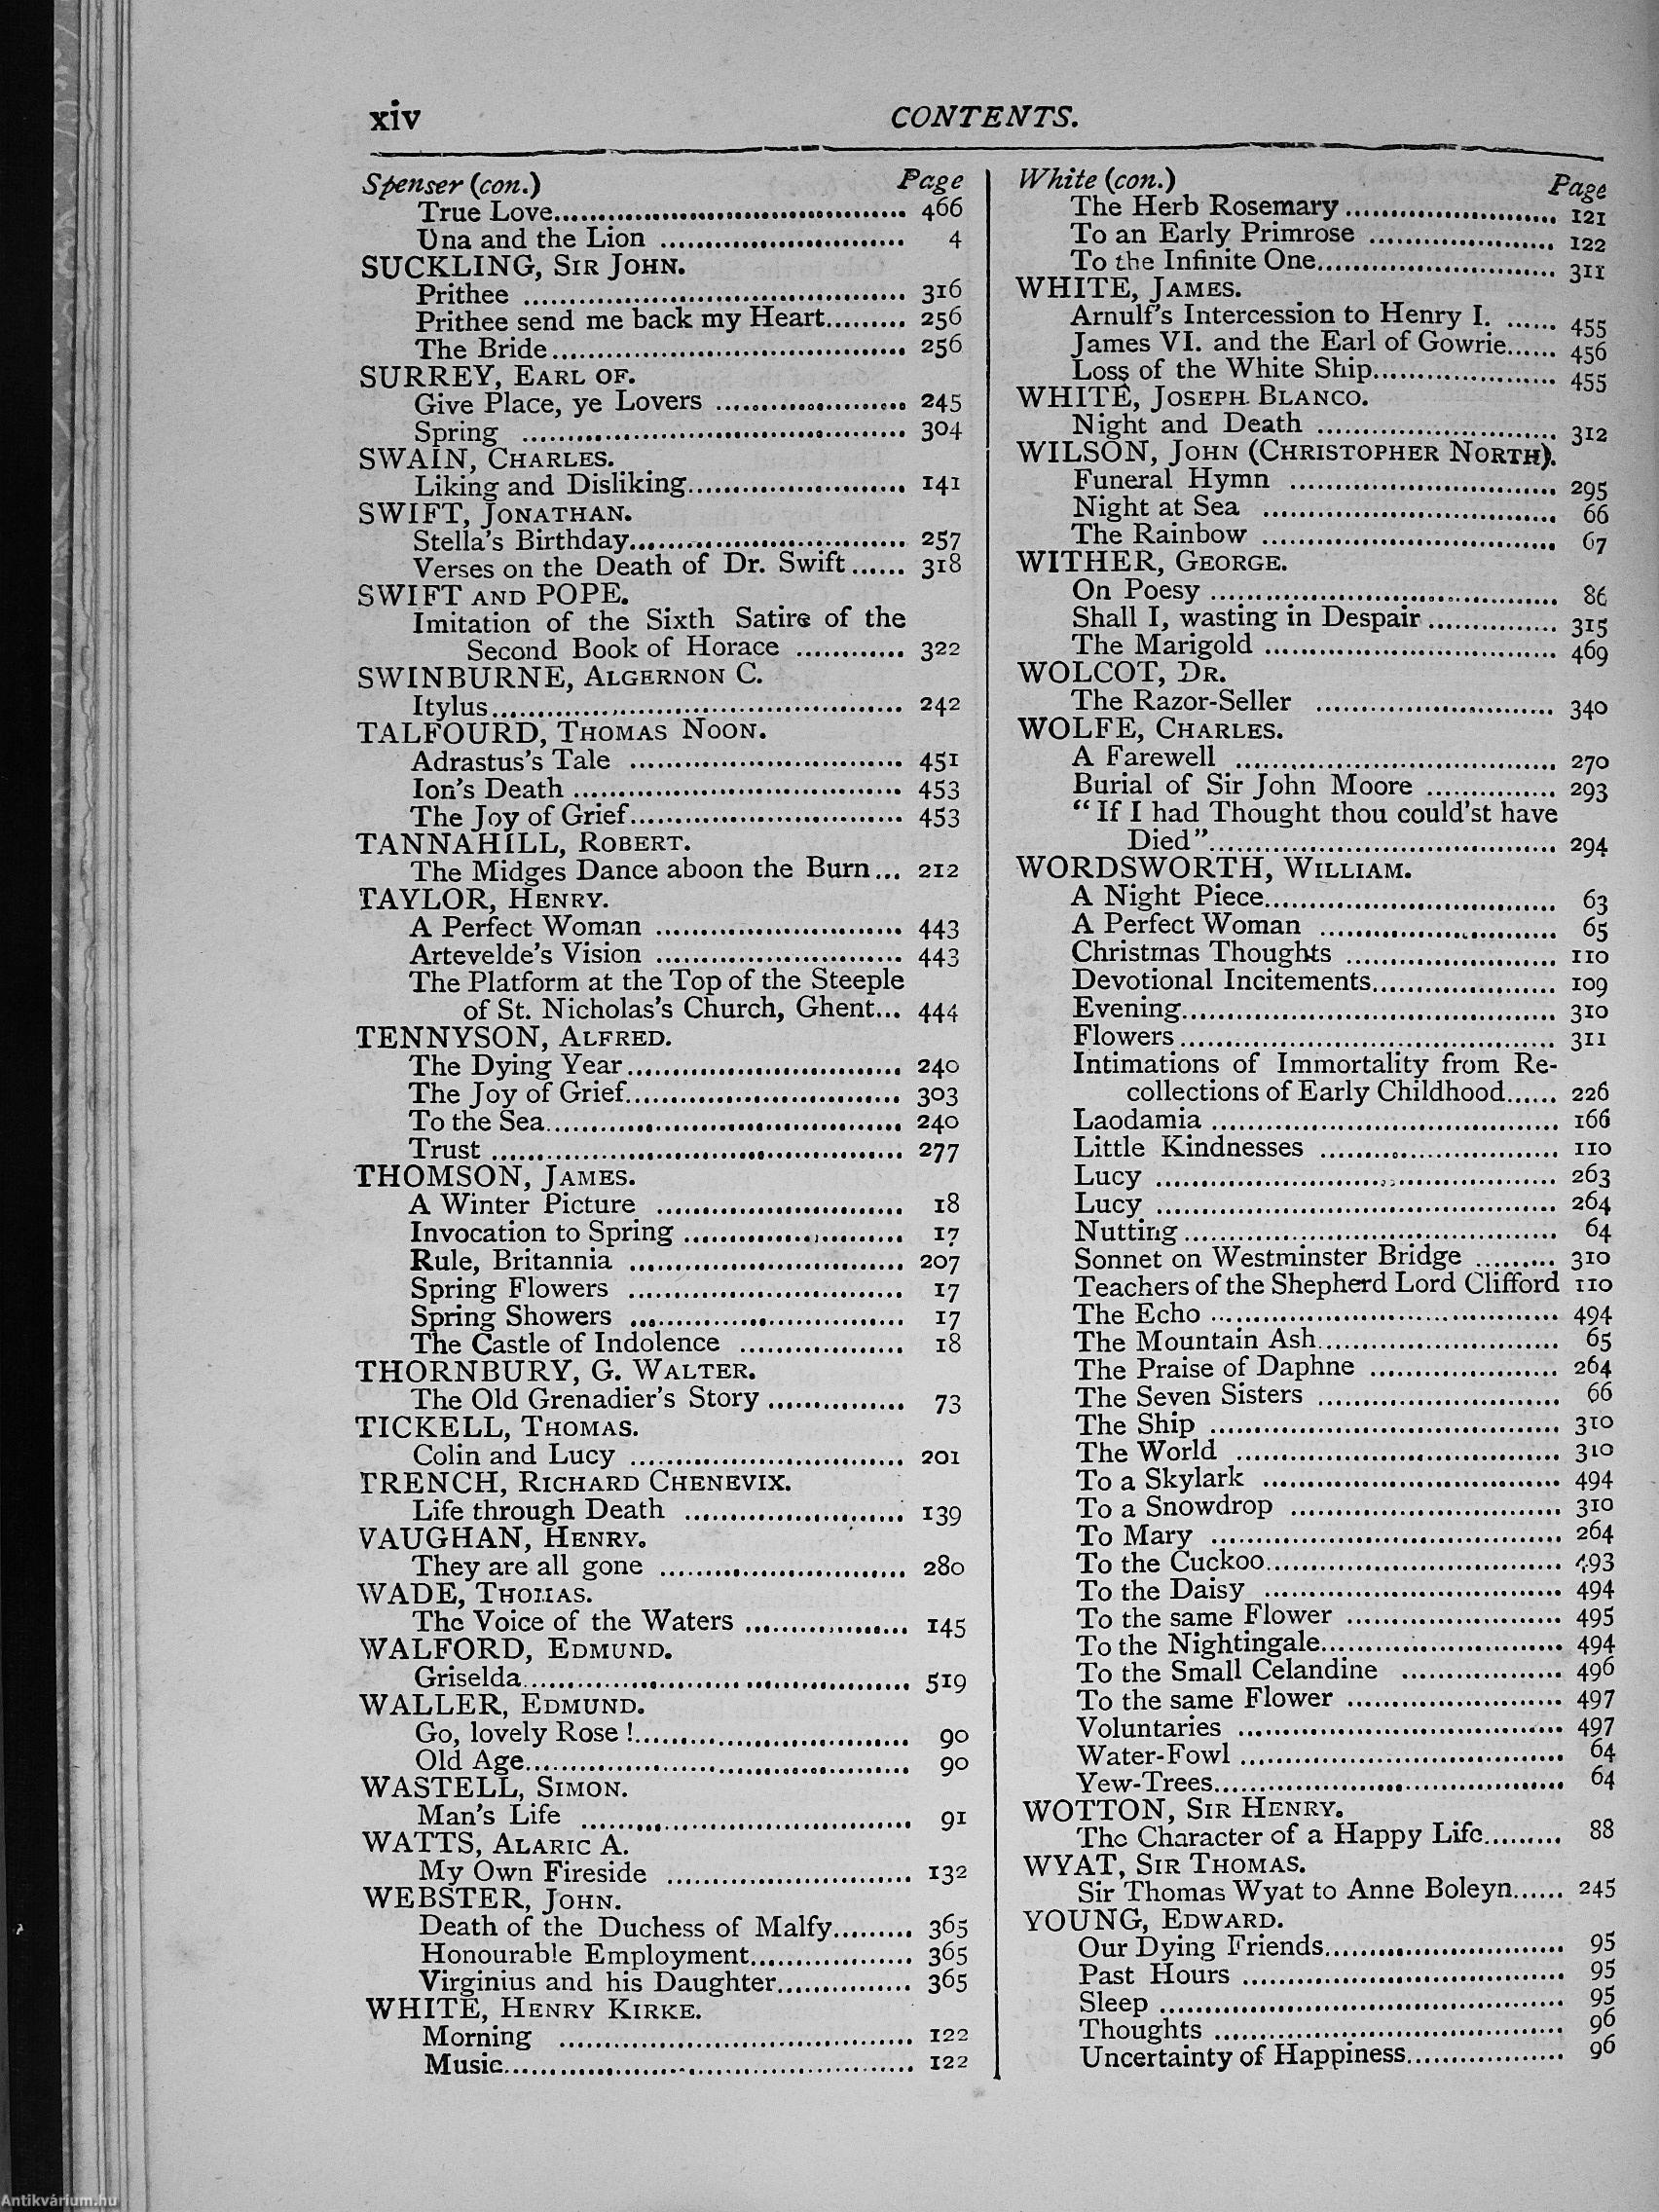 xiv
CONTENTS.
Spenser (con.) Page
True Love........ 466
Una and the Lion ........ 4
SUCKLING, SIR JOHN.
Prithee ........ 316
Prithee send me back my Heart........ 256
The Bride........ 256
SURREY, EARL OF.
Give Place, ye Lovers ........ 245
Spring ........ 304
SWAIN, CHARLES.
Liking and Disliking........ 141
SWIFT, JONATHAN.
Stella's Birthday........ 257
Verses on the Death of Dr. Swift...... 318
SWIFT AND POPE.
Imitation of the Sixth Satire of the
Second Book of Horace ........ 322
SWINBURNE, ALGERNON C.
Itylus........ 242
TALFOURD, THOMAS NOON.
Adrastus's Tale ........ 451
Ion's Death ........ 453
The Joy of Grief........ 453
TANNAHILL, ROBERT.
The Midges Dance aboon the Burn... 212
TAYLOR, HENRY.
A Perfect Woman ........ 443
Artevelde's Vision ........ 443
The Platform at the Top of the Steeple
of St. Nicholas's Church, Ghent... 444
TENNYSON, ALFRED.
The Dying Year........ 240
The Joy of Grief........ 303
To the Sea........ 240
Trust ........ 277
THOMSON, JAMES.
A Winter Picture ........ 18
Invocation to Spring ........ 17
Rule, Britannia ........ 207
Spring Flowers ........ 17
Spring Showers ........ 17
The Castle of Indolence ........ 18
THORNBURY, G. WALTER.
The Old Grenadier's Story ........ 73
TICKELL, THOMAS.
Colin and Lucy ........ 201
TRENCH, RICHARD CHENEVIX.
Life through Death ........ 139
VAUGHAN, HENRY.
They are all gone ........ 280
WADE, THOMAS.
The Voice of the Waters ........ 145
WALFORD, EDMUND.
Griselda........ 519
WALLER, EDMUND.
Go, lovely Rose !........ 90
Old Age........ 90
WASTELL, SIMON.
Man's Life ........ 91
WATTS, ALARIC A.
My Own Fireside ........ 132
WEBSTER, JOHN.
Death of the Duchess of Malfy........ 365
Honourable Employment........ 365
Virginius and his Daughter........ 365
WHITE, HENRY KIRKE.
Morning ........ 122
Music........ 122
White (con.) Page
The Herb Rosemary ........ 121
To an Early Primrose ........ 122
To the Infinite One........ 311
WHITE, JAMES.
Arnulf's Intercession to Henry I. ...... 455
James VI. and the Earl of Gowrie...... 456
Loss of the White Ship........ 455
WHITE, JOSEPH BLANCO.
Night and Death ........ 312
WILSON, JOHN (CHRISTOPHER NORTH).
Funeral Hymn ........ 295
Night at Sea ........ 66
The Rainbow ........ 67
WITHER, GEORGE.
On Poesy ........ 86
Shall I, wasting in Despair........ 315
The Marigold ........ 469
WOLCOT, DR.
The Razor-Seller ........ 340
WOLFE, CHARLES.
A Farewell ........ 270
Burial of Sir John Moore ........ 293
"If I had Thought thou could'st have
Died"........ 294
WORDSWORTH, WILLIAM.
A Night Piece........ 63
A Perfect Woman ........ 65
Christmas Thoughts ........ 110
Devotional Incitements........ 109
Evening........ 310
Flowers........ 311
Intimations of Immortality from Re-
collections of Early Childhood...... 226
Laodamia ........ 166
Little Kindnesses ........ 110
Lucy ........ 263
Lucy ........ 264
Nutting........ 64
Sonnet on Westminster Bridge ........ 310
Teachers of the Shepherd Lord Clifford 110
The Echo ........ 494
The Mountain Ash........ 65
The Praise of Daphne ........ 264
The Seven Sisters ........ 66
The Ship ........ 310
The World ........ 310
To a Skylark ........ 494
To a Snowdrop ........ 310
To Mary ........ 264
To the Cuckoo........ 493
To the Daisy ........ 494
To the same Flower ........ 495
To the Nightingale........ 494
To the Small Celandine ........ 496
To the same Flower ........ 497
Voluntaries ........ 497
Water-Fowl ........ 64
Yew-Trees........ 64
WOTTON, SIR HENRY.
The Character of a Happy Life........ 88
WYAT, SIR THOMAS.
Sir Thomas Wyat to Anne Boleyn...... 245
YOUNG, EDWARD.
Our Dying Friends........ 95
Past Hours ........ 95
Sleep ........ 95
Thoughts ........ 96
Uncertainty of Happiness........ 96
Antikvárium.hu